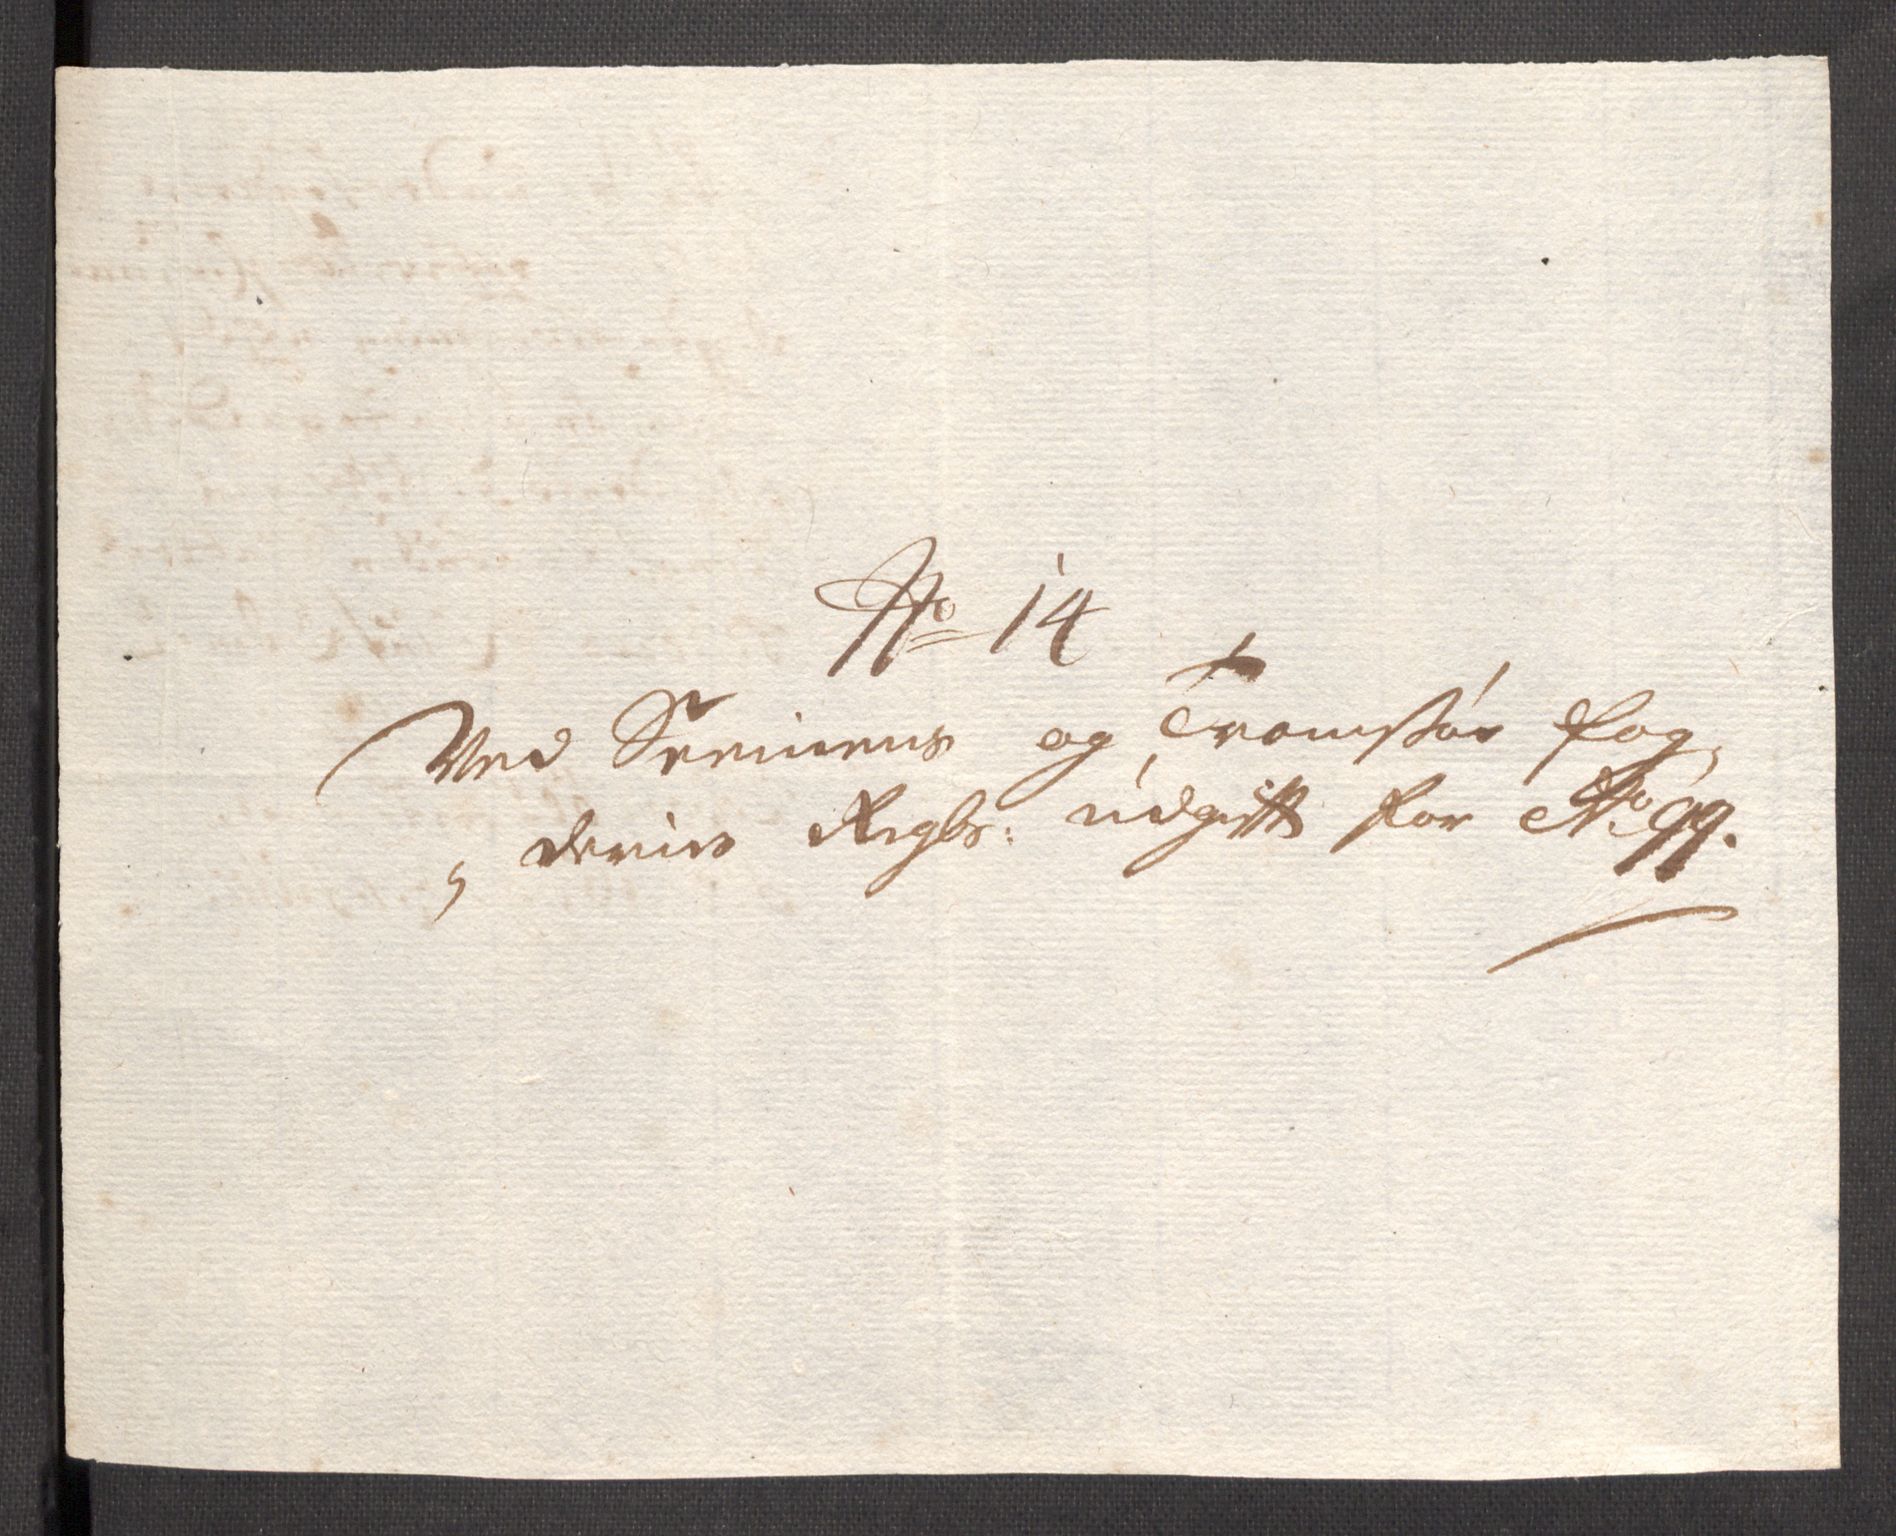 No 14
Ved Senniens og Tromsøs fog,
,deries Regbs: udgifft for Ao 99.